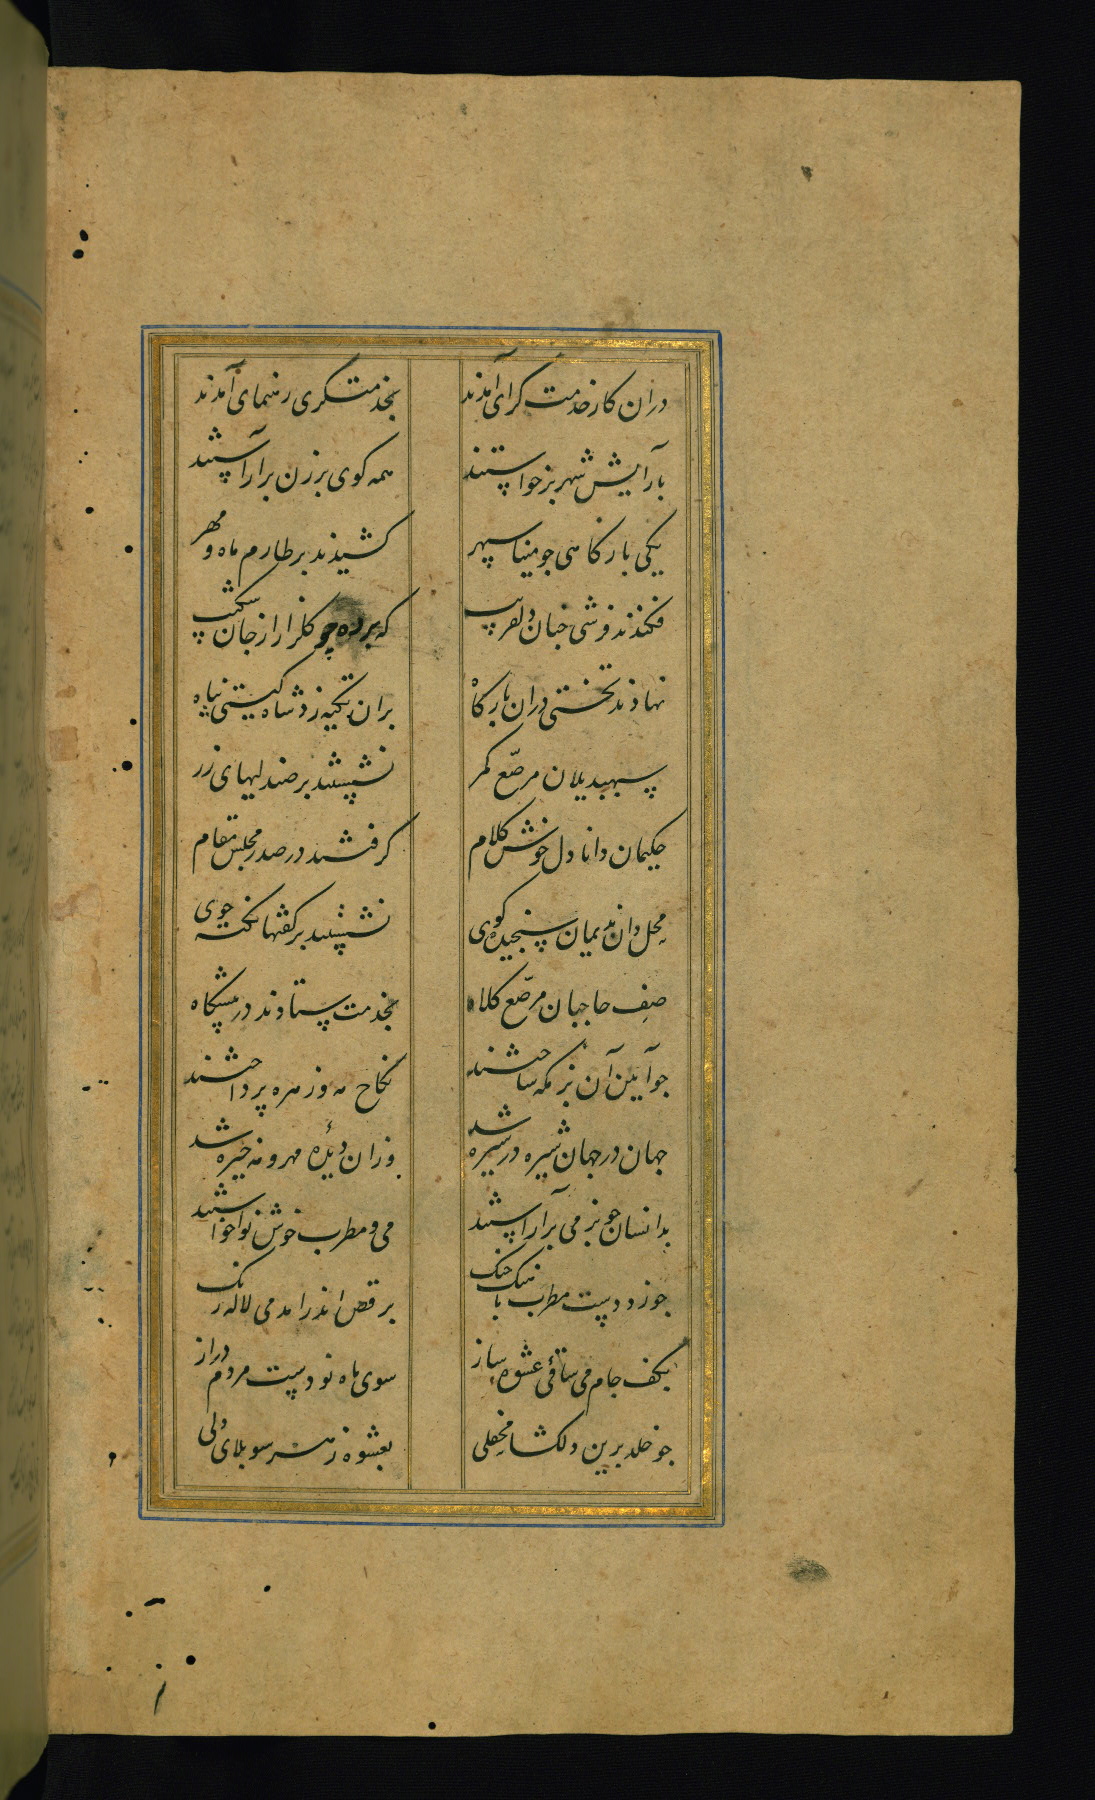 دران کار خدمت کرای آمدند بخدمتکری رهنمای آمدند
بآرایش شهر برخواستند همه کوی برزن برآراستند
یکی بارکاهی جو مینا سپهر کشیدند بر طارم ماه و مهر
فکندند فرشی جنان دلفریب که برده چو کلزار از جان شکیب
نهادند تختی دران بارکاه بران تکیه زد شاه کیتی پناه
سپهبد یلان مرصّع کمر نشستند بر صندلیهای زر
حکیمان دانا دل خوش کلام کرفتند در صدر مجلس مقام
محل دان ندیمان سنجیده کوی نشستند نکته جوی
صف حاجبان مرصّع کلاه بخدمت ستادند در پیشکاه
جو آیین آن بزمکه ساختند نکاح مه و زهره پرداختند
جهان در جهان شیره در شیره شد وزان دیدهٔ مهر و مه خیره شد
بدانسان جو بزمی برآراستند می و مطرب خوش نوا خواستند
جو زد دست مطرب با جنک برقص اندر امد می لاله رنک
بکف جام می ساقئ عشوه ساز سوی ماه نو دست مردم دراز
جو خلد برین دلکشا محفلی بعشوه ز هر سو بلای دلی